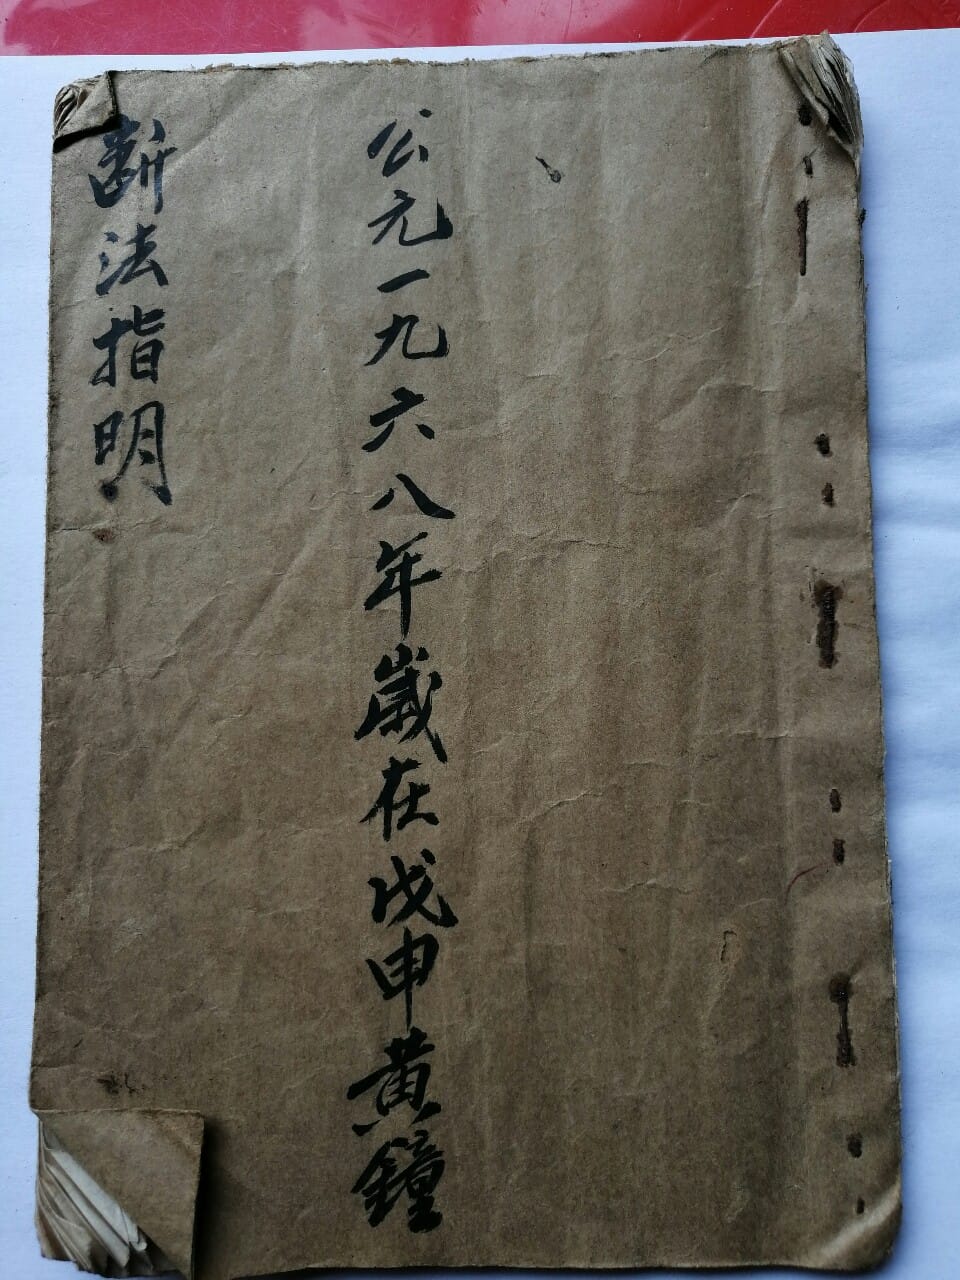 公元一九六八年歲在戊申黄鐘
断法指明